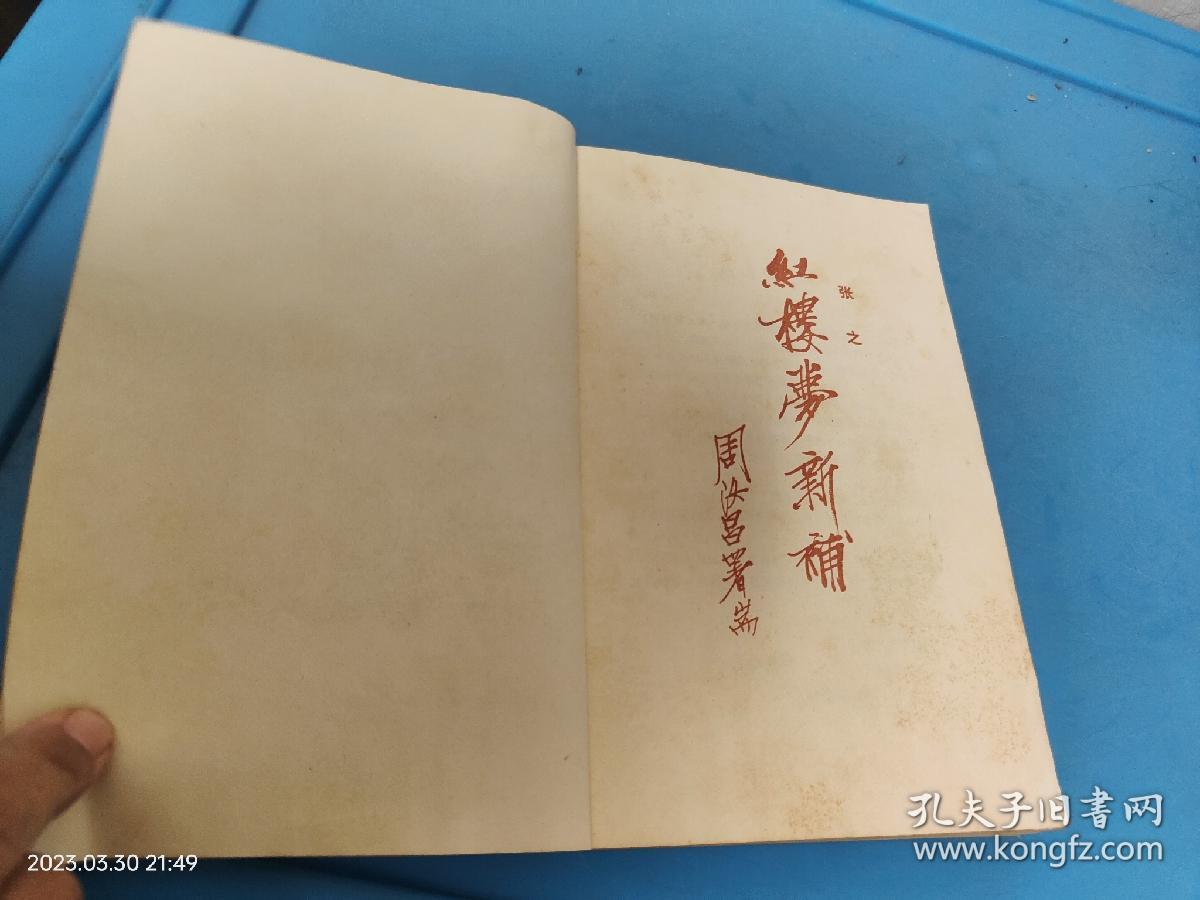 张之
紅樓夢新補
周汝昌署耑
2023.03.30 21:49
孔夫子旧書网
www.kongfz.com